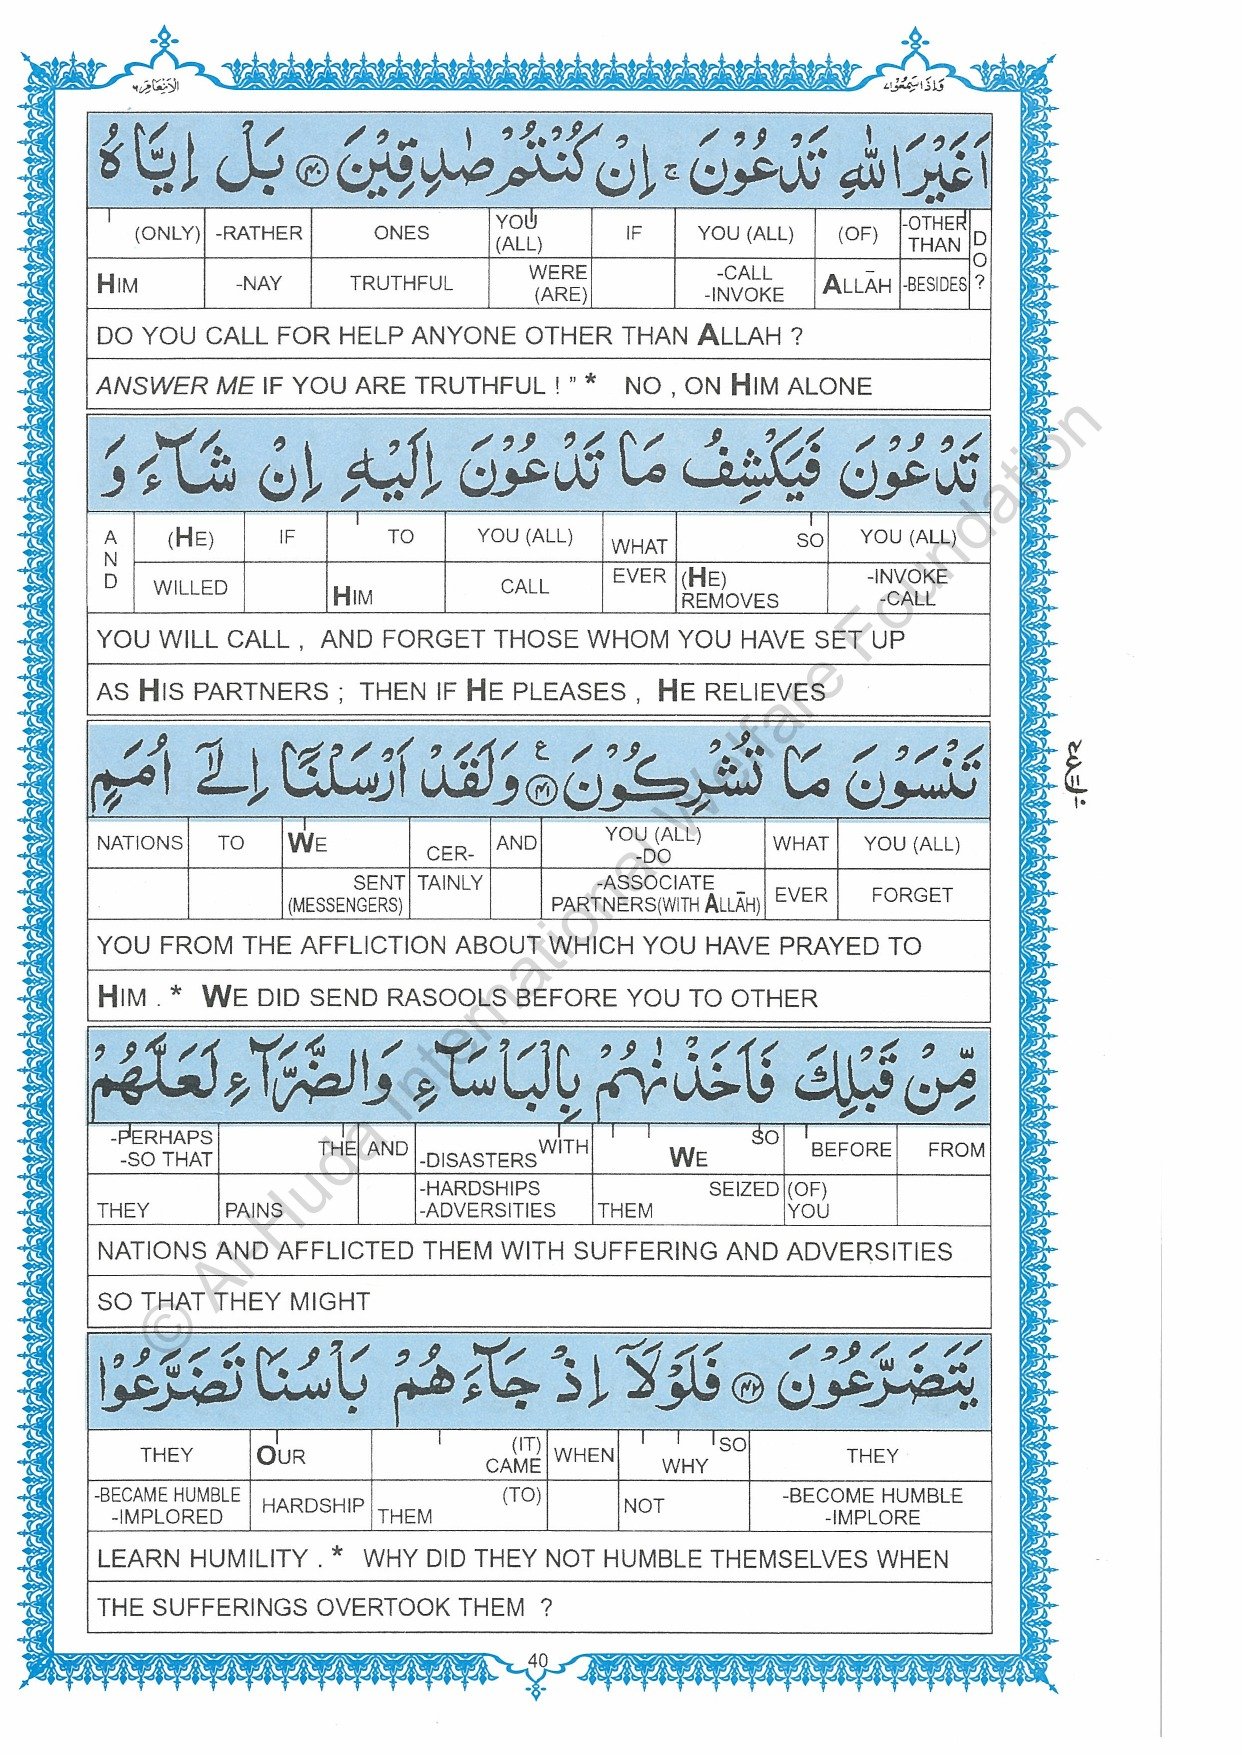 وَاِذَا سَمِعُوْا۷
الانعام۶
اَغَيْرَ اللّٰهِ تَدْعُوْنَ ۚ اِنْ كُنْتُمْ صٰدِقِيْنَ ﴿۴۰﴾ بَلْ اِيَّاهُ
(ONLY) -RATHER ONES YOU (ALL) IF YOU (ALL) (OF) -OTHER THAN DO?
HIM -NAY TRUTHFUL WERE (ARE) -CALL -INVOKE ALLĀH -BESIDES
DO YOU CALL FOR HELP ANYONE OTHER THAN ALLAH ?
ANSWER ME IF YOU ARE TRUTHFUL ! ” * NO , ON HIM ALONE
تَدْعُوْنَ فَيَكْشِفُ مَا تَدْعُوْنَ اِلَيْهِ اِنْ شَآءَ وَ
AND (HE) IF TO YOU (ALL) WHAT SO YOU (ALL)
WILLED HIM CALL EVER (HE) REMOVES -INVOKE -CALL
YOU WILL CALL , AND FORGET THOSE WHOM YOU HAVE SET UP
AS HIS PARTNERS ; THEN IF HE PLEASES , HE RELIEVES
تَنْسَوْنَ مَا تُشْرِكُوْنَ ﴿۴۱﴾ ع وَلَقَدْ اَرْسَلْنَآ اِلٰٓى اُمَمٍ
NATIONS TO WE CER- AND YOU (ALL) -DO WHAT YOU (ALL)
SENT (MESSENGERS) TAINLY -ASSOCIATE PARTNERS(WITH ALLĀH) EVER FORGET
YOU FROM THE AFFLICTION ABOUT WHICH YOU HAVE PRAYED TO
HIM . * WE DID SEND RASOOLS BEFORE YOU TO OTHER
مِّنْ قَبْلِكَ فَاَخَذْنٰهُمْ بِالْبَاْسَآءِ وَالضَّرَّآءِ لَعَلَّهُمْ
-PERHAPS -SO THAT THE AND -DISASTERS WITH WE SO BEFORE FROM
THEY PAINS -HARDSHIPS -ADVERSITIES THEM SEIZED (OF) YOU
NATIONS AND AFFLICTED THEM WITH SUFFERING AND ADVERSITIES
SO THAT THEY MIGHT
يَتَضَرَّعُوْنَ ﴿۴۲﴾ فَلَوْلَآ اِذْ جَآءَهُمْ بَاْسُنَا تَضَرَّعُوْا
THEY OUR (IT) CAME WHEN WHY SO THEY
-BECAME HUMBLE -IMPLORED HARDSHIP THEM (TO) NOT -BECOME HUMBLE -IMPLORE
LEARN HUMILITY . * WHY DID THEY NOT HUMBLE THEMSELVES WHEN
THE SUFFERINGS OVERTOOK THEM ?
40
© Al-Huda International Welfare Foundation